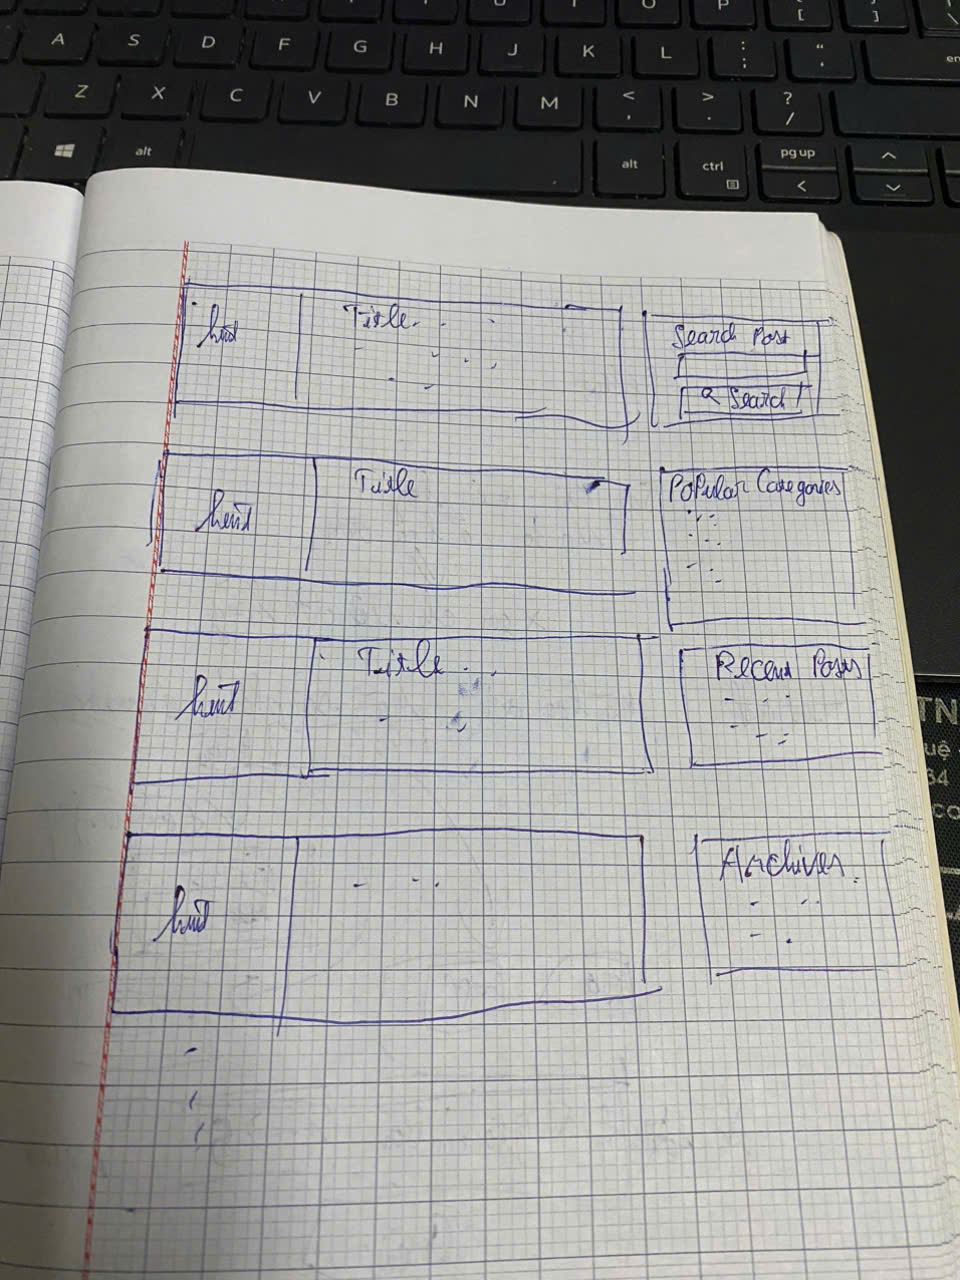 O
P
[
{
]
}
\
A
S
D
F
G
H
J
K
L
:
;
"
'
en
Z
X
C
V
B
N
M
<
,
>
.
?
/
alt
alt
ctrl
pg up
<
hình
Title
Search Post
Search
hình
Title
Popular Categories
hình
Title
Recent Posts
TN
uệ
64
co
hình
Archives